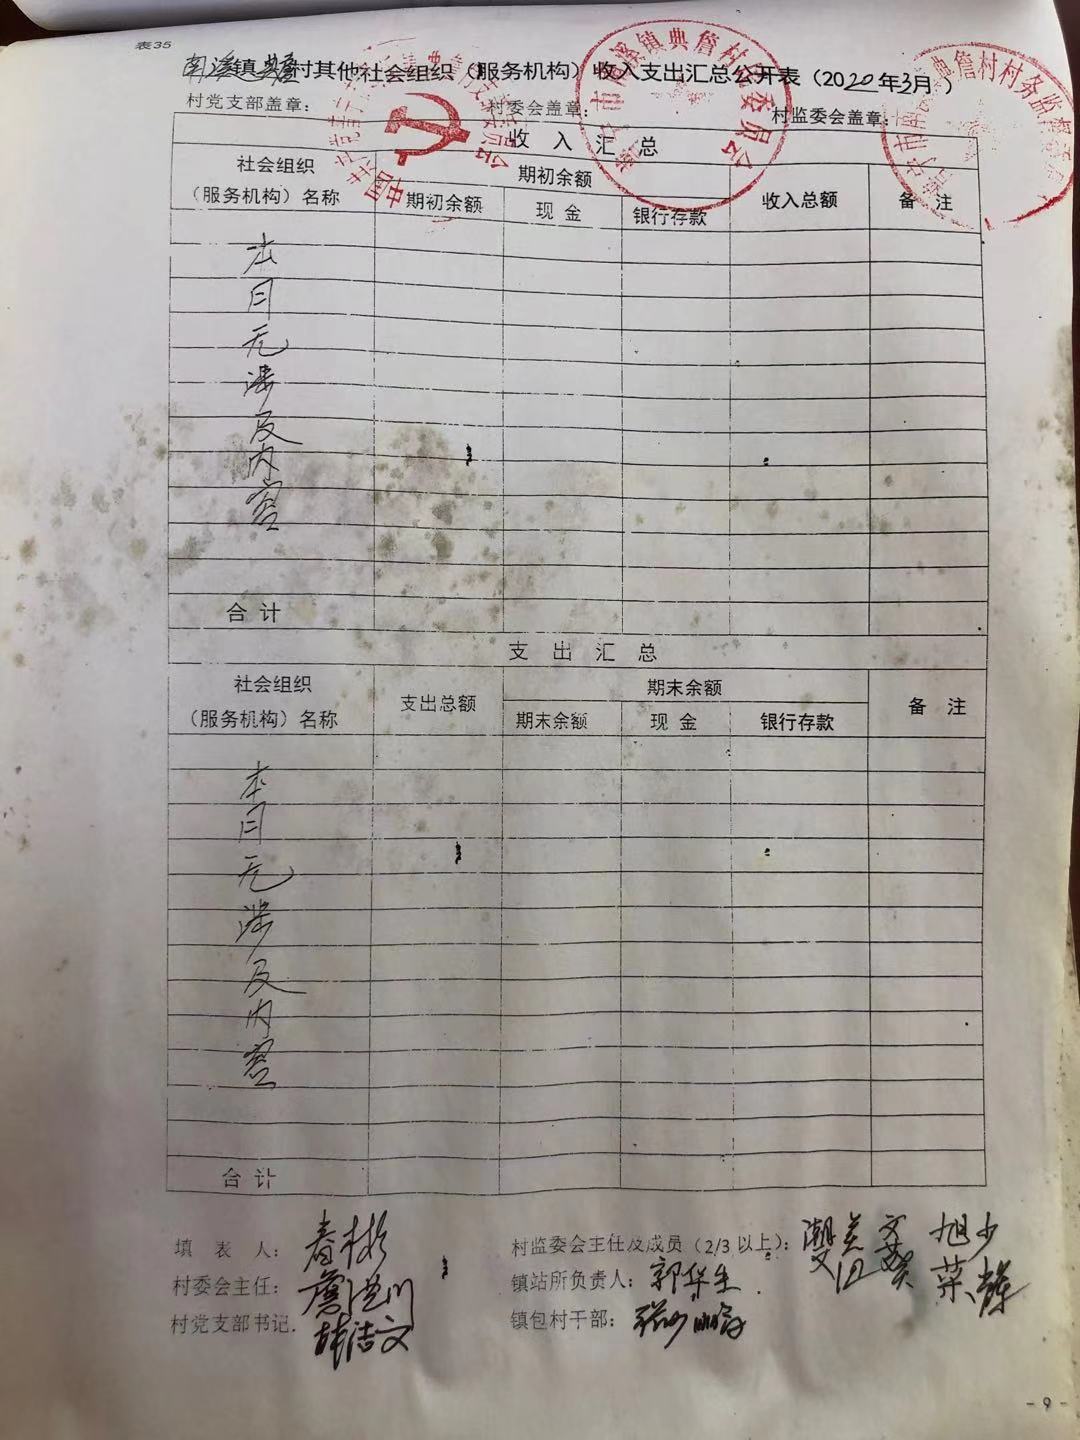 表35
南溪镇典詹村其他社会组织（服务机构）收入支出汇总公开表（2020年3月）
村党支部盖章： 村委会盖章： 村监委会盖章：
收 入 汇 总
社会组织（服务机构）名称 期初余额 收入总额 备 注
期初余额 现 金 银行存款
本月无涉及内容
合 计
支 出 汇 总
社会组织（服务机构）名称 支出总额 期末余额 备 注
期末余额 现 金 银行存款
本月无涉及内容
合 计
填 表 人： 春彬 村监委会主任及成员（2/3以上）：
村委会主任： 镇站所负责人： 郭华生
村党支部书记. 洁文 镇包村干部：
- 9 -